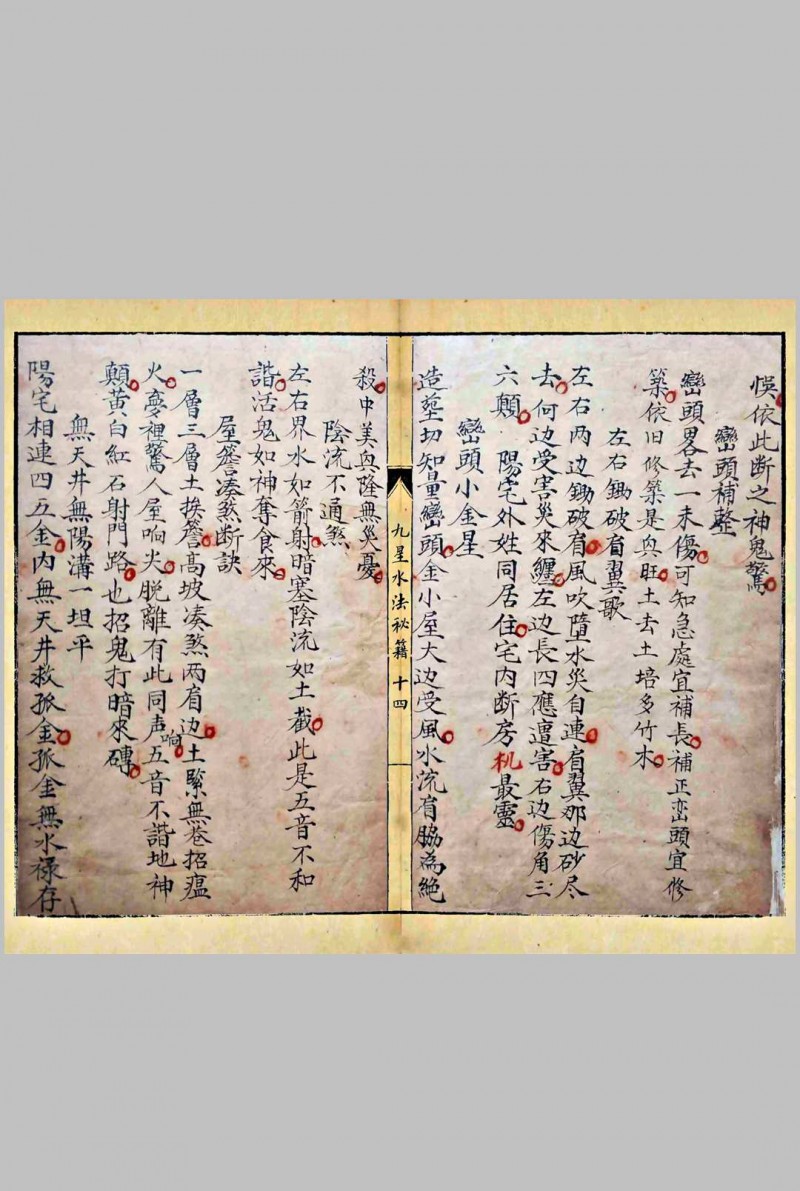 悮依此断之神鬼驚
巒頭補整
巒頭畧去一未傷可知急處宜補長補正峦頭宜修
築依旧修築是與旺土去土培多竹木
左右鋤破肩翼歌
左右两边鋤破肩風吹墮水災自連肩翼那边砂尽
去何边受害災來纏左边長四應遭害右边傷角三
六顛 陽宅外姓同居住宅内断房机最靈
巒頭小金星
造墓切知量巒頭金小屋大边受風水流肩脇為絶
九星水法祕籍 十四
殺中美與隆無災憂
陰流不通煞
左右界水如箭射暗塞陰流如土截此是五音不和
諧活鬼如神奪食來
屋簷凑煞断訣
一層三層土挨簷高坡凑煞两肩边土緊無巷招瘟
火夢裡驚人屋响火脱離有此同声响五音不諧地神
顛黄白紅石射門路也招鬼打暗來磚
無天井無陽溝一坦平
陽宅相連四五金内無天井救孤金孤金無水禄存